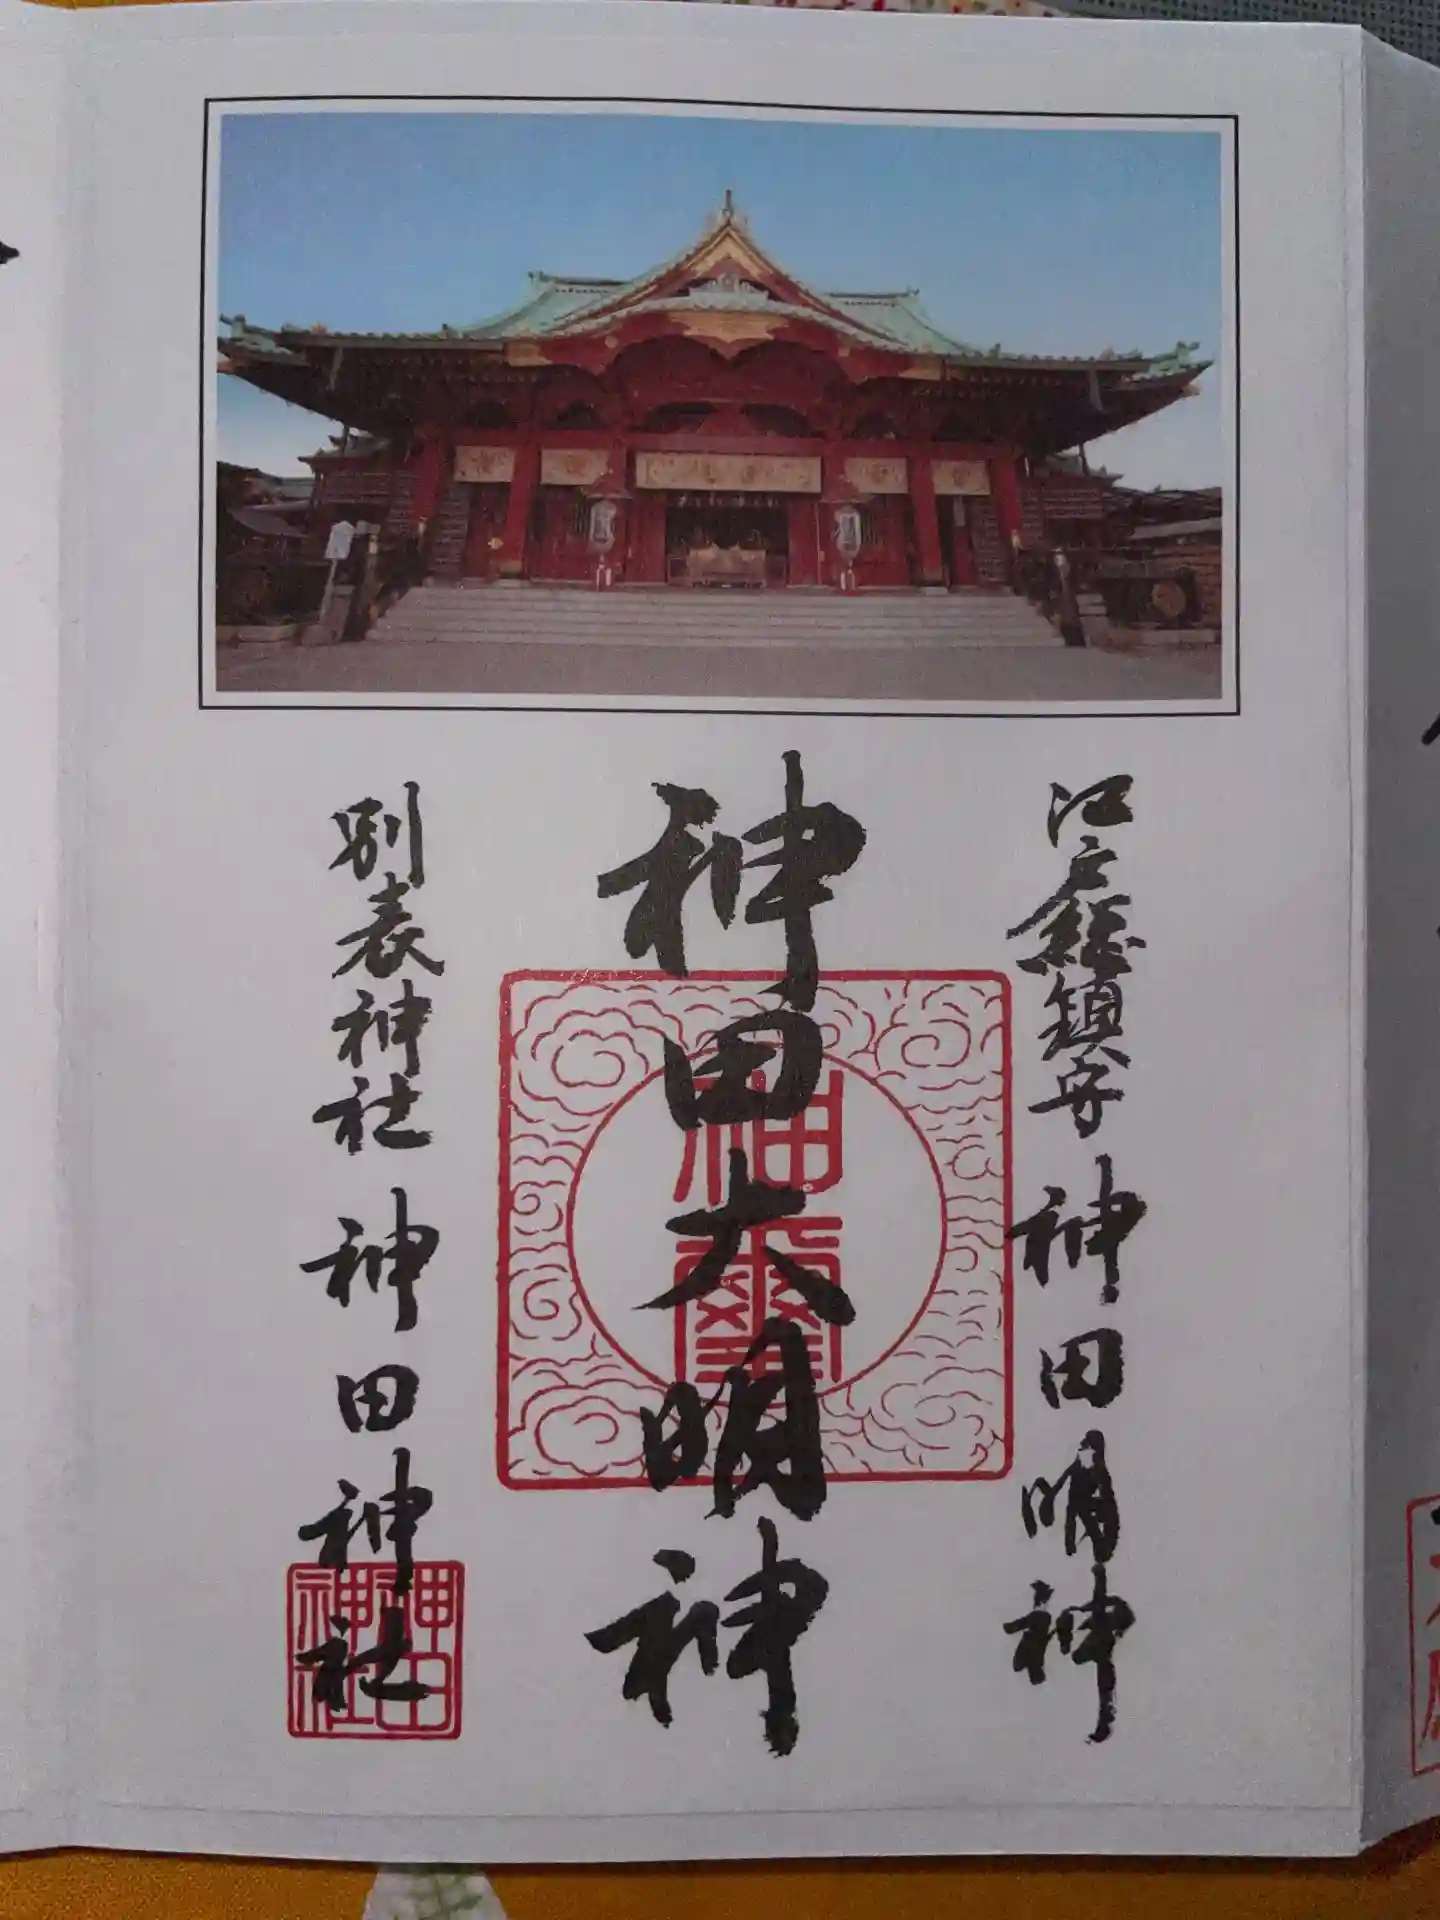 江戸総鎮守 神田明神
神田大明神
別表神社 神田神社
神璽
神田
神社